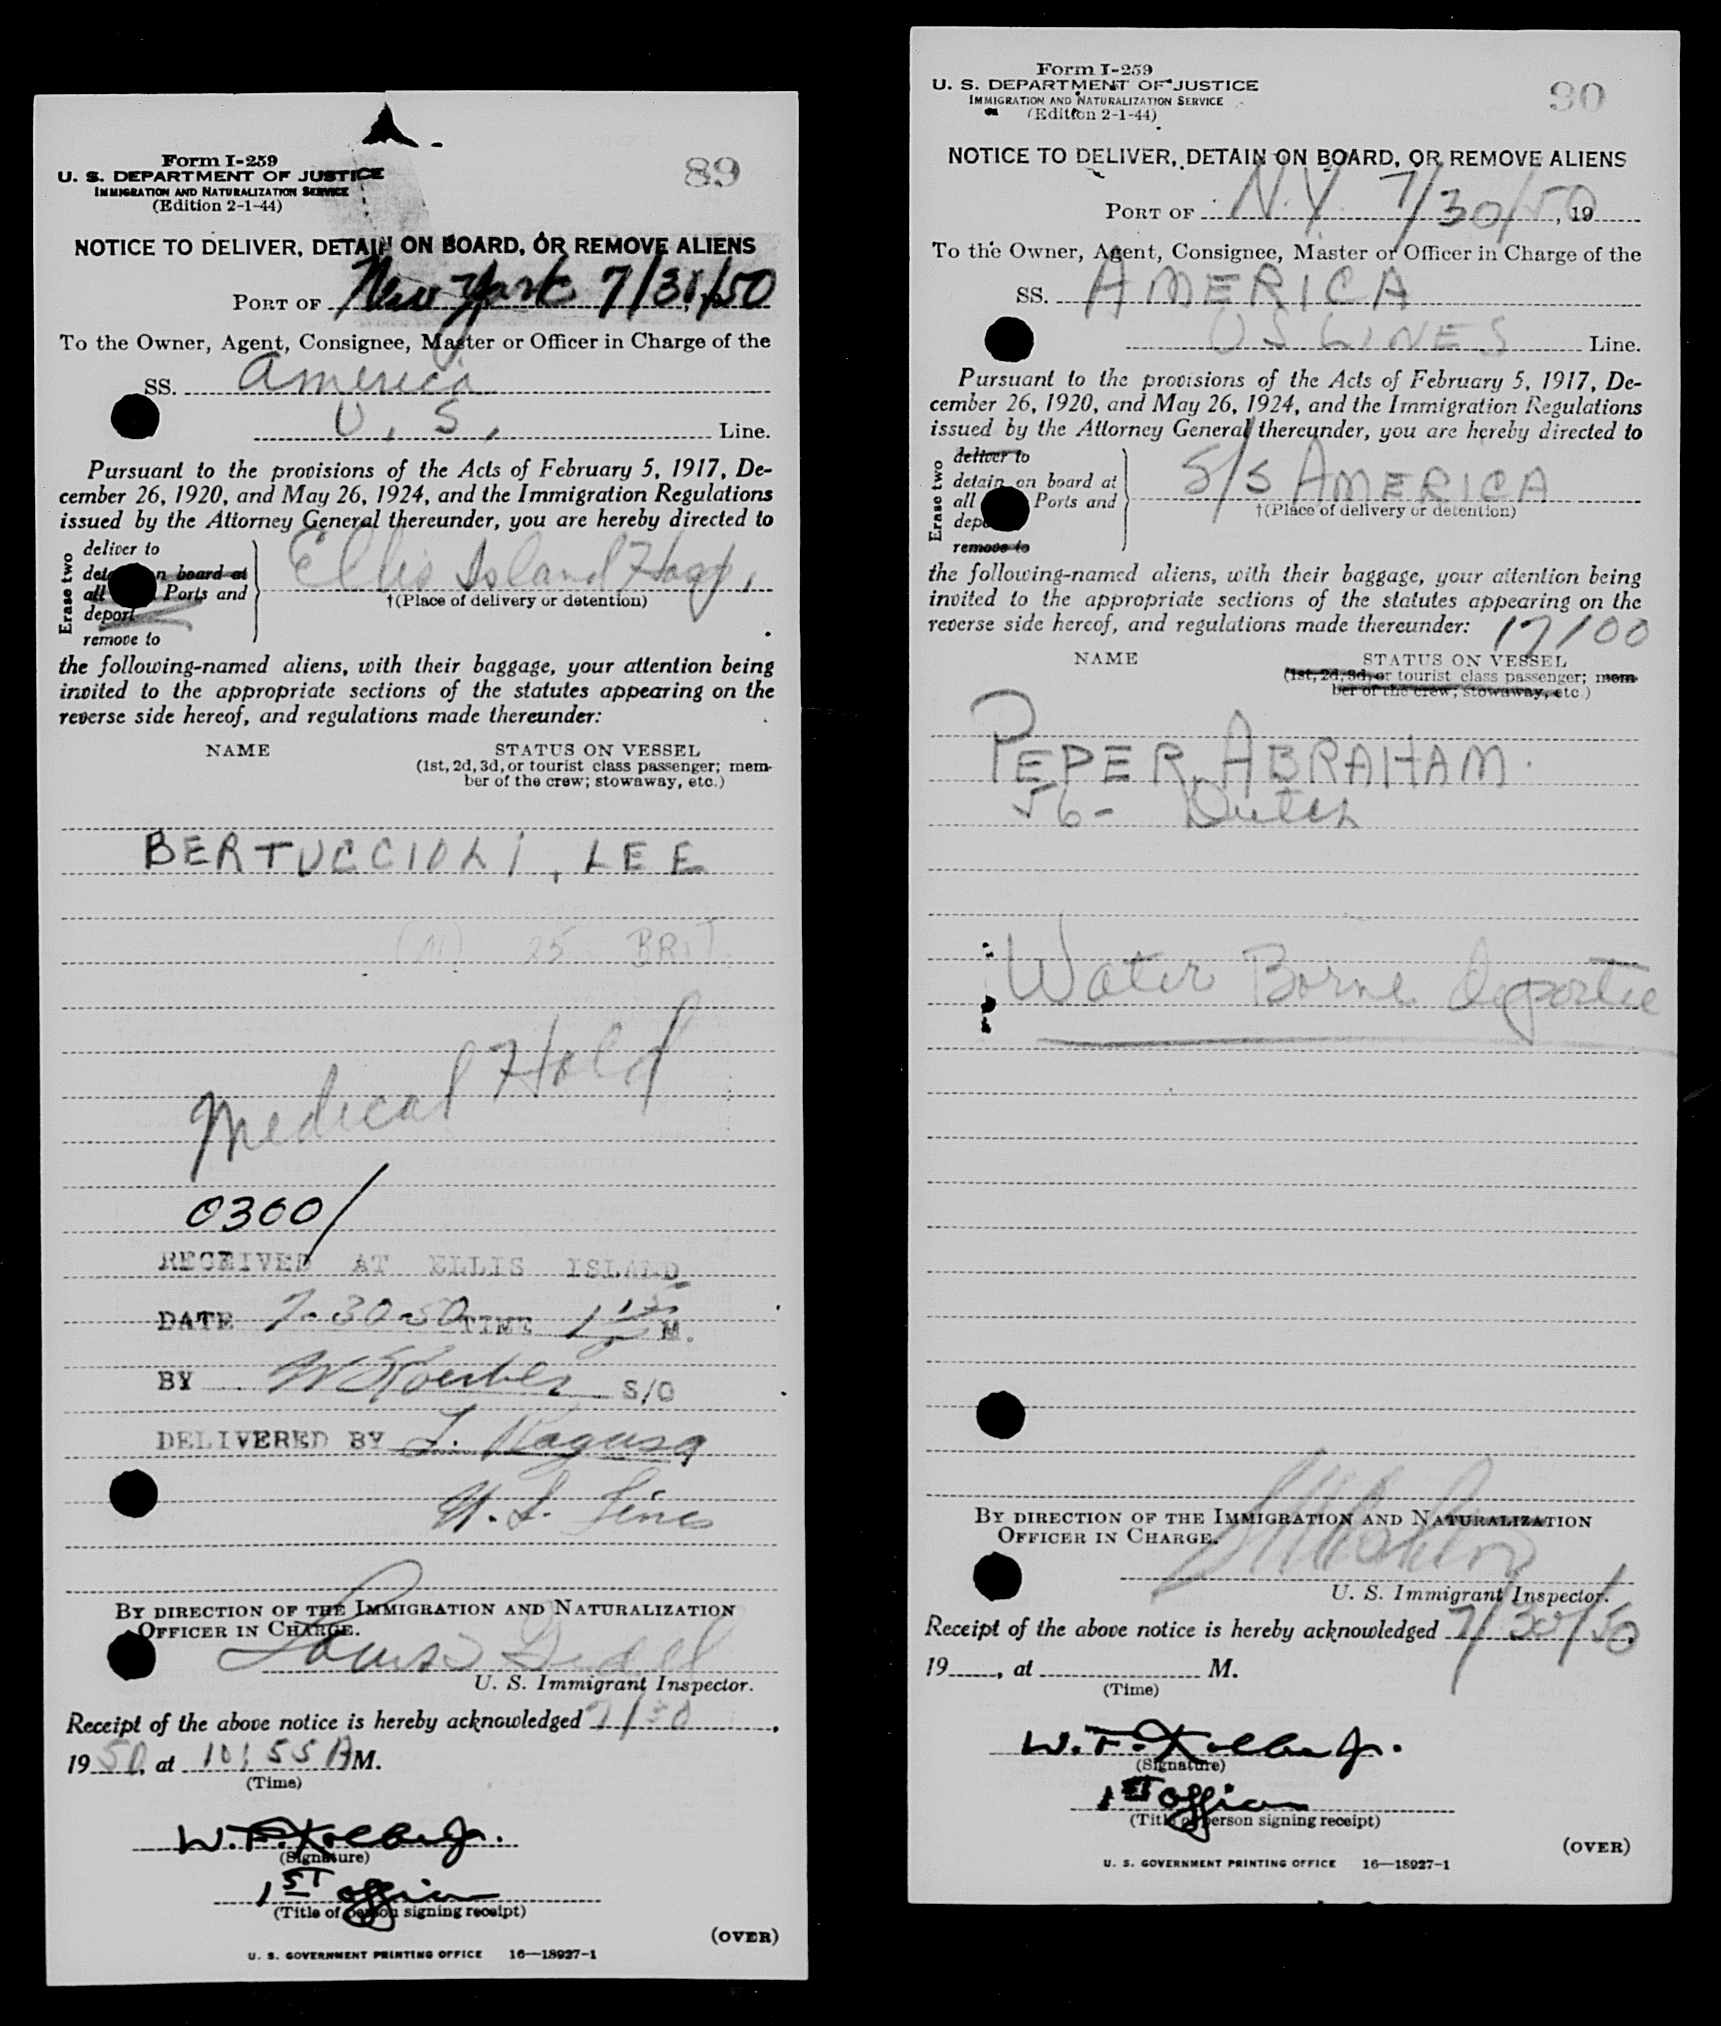 Form I-259
U. S. DEPARTMENT OF JUSTICE
IMMIGRATION AND NATURALIZATION SERVICE
(Edition 2-1-44)
89
NOTICE TO DELIVER, DETAIN ON BOARD, OR REMOVE ALIENS
PORT OF New York 7/30/50
To the Owner, Agent, Consignee, Master or Officer in Charge of the
SS. America
U. S. Line.
Pursuant to the provisions of the Acts of February 5, 1917, De-
cember 26, 1920, and May 26, 1924, and the Immigration Regulations
issued by the Attorney General thereunder, you are hereby directed to
Erase two
deliver to
on board at
all Ports and
deport
remove to
Ellis Island Hosp.
†(Place of delivery or detention)
the following-named aliens, with their baggage, your attention being
invited to the appropriate sections of the statutes appearing on the
reverse side hereof, and regulations made thereunder:
NAME STATUS ON VESSEL
(1st, 2d, 3d, or tourist class passenger; mem-
ber of the crew; stowaway, etc.)
BERTUCCIOLI, LEE
(M) 25 BRIT.
Medical Hold
0300/
RECEIVED AT ELLIS ISLAND
DATE 7-30-50 TIME 1 15 M.
BY S/O
DELIVERED BY I. Ragusa
U. S. Lines
BY DIRECTION OF THE IMMIGRATION AND NATURALIZATION
OFFICER IN CHARGE.
U. S. Immigrant Inspector.
Receipt of the above notice is hereby acknowledged 7/30,
1950, at 10:55 AM.
(Time)
W. F. Kolbe Jr.
(Signature)
1ST Officer
(Title of person signing receipt)
(OVER)
U. S. GOVERNMENT PRINTING OFFICE 16—18927-1
Form I-259
U. S. DEPARTMENT OF JUSTICE
IMMIGRATION AND NATURALIZATION SERVICE
(Edition 2-1-44)
90
NOTICE TO DELIVER, DETAIN ON BOARD, OR REMOVE ALIENS
PORT OF N.Y. 7/30/50, 19
To the Owner, Agent, Consignee, Master or Officer in Charge of the
SS. AMERICA
US LINES Line.
Pursuant to the provisions of the Acts of February 5, 1917, De-
cember 26, 1920, and May 26, 1924, and the Immigration Regulations
issued by the Attorney General thereunder, you are hereby directed to
Erase two
deliver to
detain on board at
all Ports and
remove to
S/S AMERICA
†(Place of delivery or detention)
the following-named aliens, with their baggage, your attention being
invited to the appropriate sections of the statutes appearing on the
reverse side hereof, and regulations made thereunder: 17/00
NAME STATUS ON VESSEL
(1st, 2d, 3d, or tourist class passenger; mem-
ber of the crew; stowaway, etc.)
PEPER, ABRAHAM.
56- Dutch
Water Borne Deportee
BY DIRECTION OF THE IMMIGRATION AND NATURALIZATION
OFFICER IN CHARGE.
U. S. Immigrant Inspector.
Receipt of the above notice is hereby acknowledged 7/30/50,
19, at M.
(Time)
W. F. Kolbe Jr.
(Signature)
1ST Officer
(Title of person signing receipt)
(OVER)
U. S. GOVERNMENT PRINTING OFFICE 16—18927-1